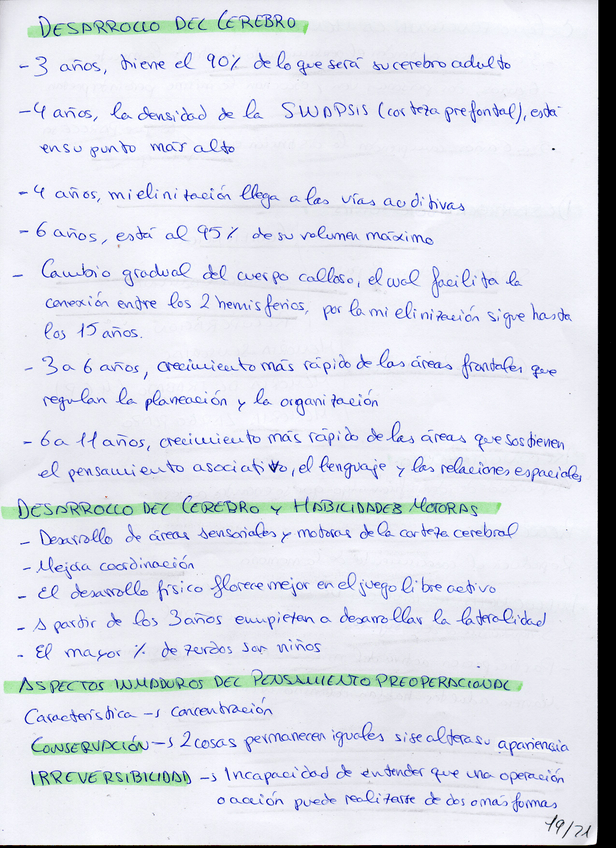 DESARROLLO DEL CEREBRO
- 3 años, tiene el 90% de lo que será su cerebro adulto
- 4 años, la densidad de la SINAPSIS (corteza prefontal), está
en su punto más alto
- 4 años, mielinización llega a las vías auditivas
- 6 años, está al 95% de su volumen máximo
- Cambio gradual del cuerpo calloso, el cual facilita la
conexión entre los 2 hemisferios, por la mielinización sigue hasta
los 15 años.
- 3 a 6 años, crecimiento más rápido de las áreas frontales que
regulan la planeación y la organización
- 6 a 11 años, crecimiento más rápido de las áreas que sostienen
el pensamiento asociativo, el lenguaje y las relaciones espaciales
DESARROLLO DEL CEREBRO Y HABILIDADES MOTORAS
- Desarrollo de áreas sensoriales y motoras de la corteza cerebral
- Mejora coordinación
- El desarrollo físico florece mejor en el juego libre activo
- A partir de los 3 años empiezan a desarrollar la lateralidad
- El mayor % de zurdos son niños
ASPECTOS INMADUROS DEL PENSAMIENTO PREOPERACIONAL
Característica → concentración
CONSERVACIÓN → 2 cosas permanecen iguales si se altera su apariencia
IRREVERSIBILIDAD → Incapacidad de entender que una operación
o acción puede realizarse de dos o más formas
19/21